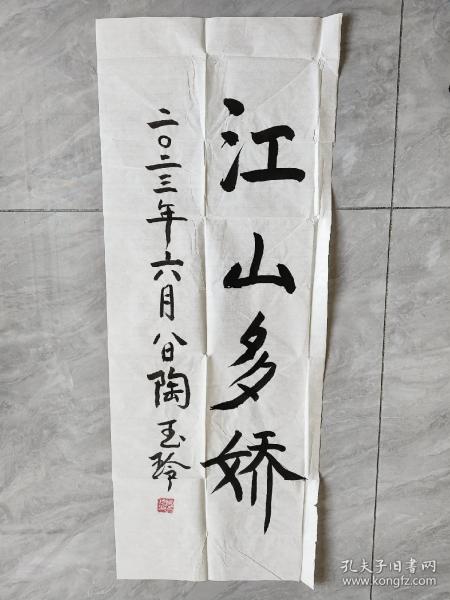 江山多娇
二〇二三年六月八日陶玉玲
孔夫子旧书网
www.kongfz.com